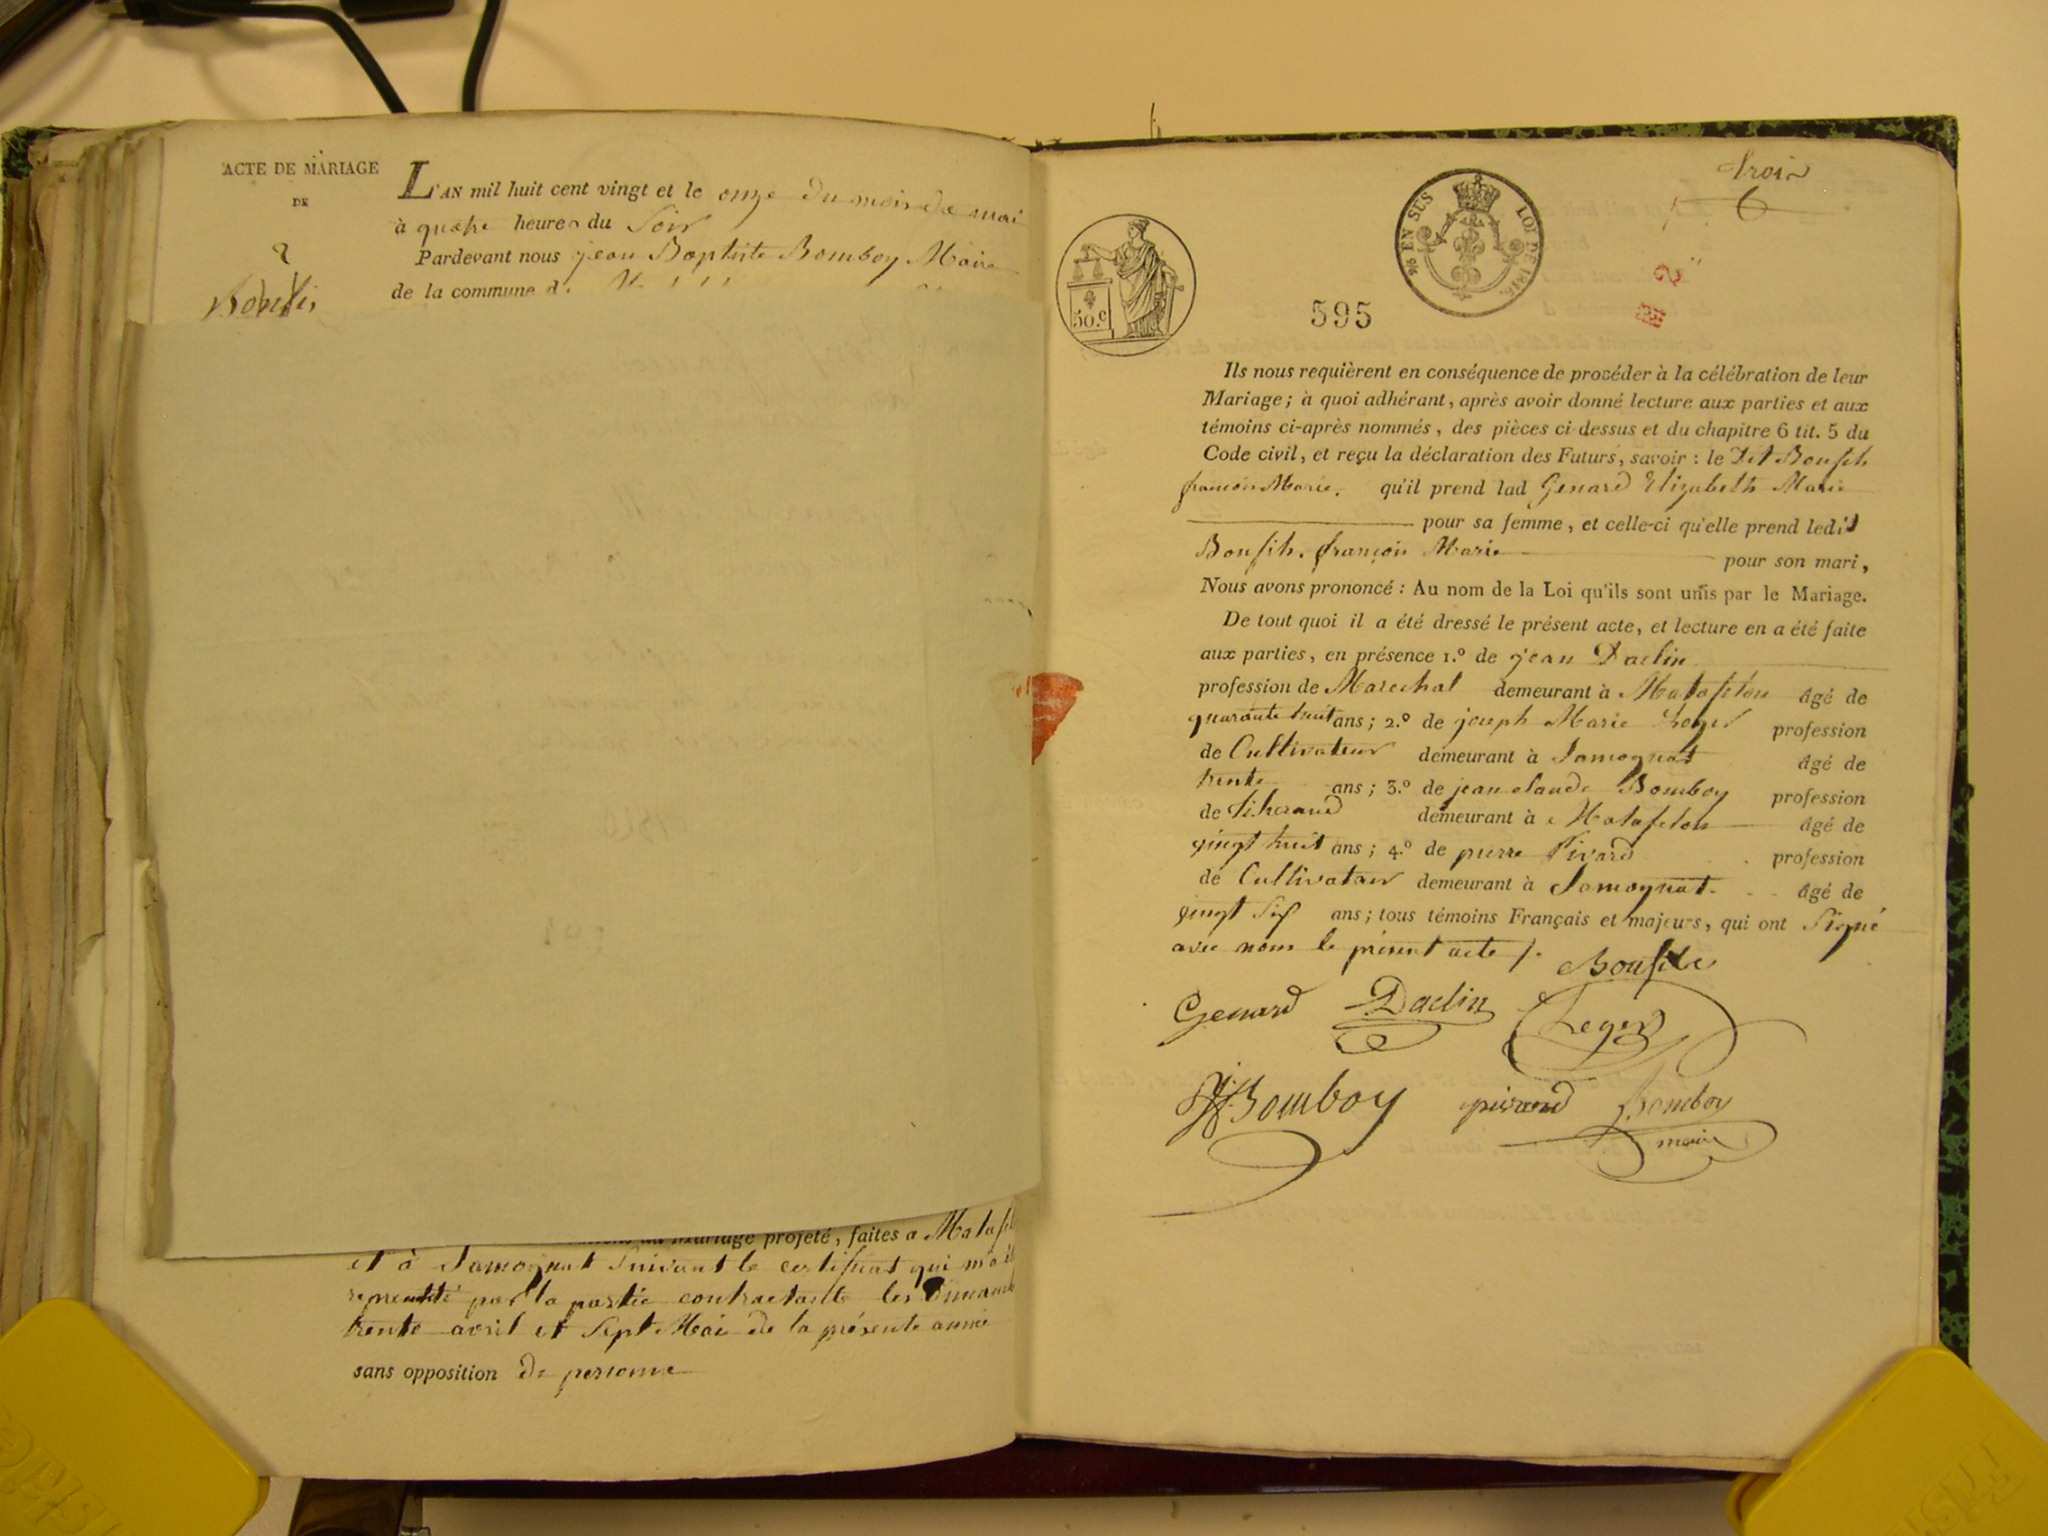 ACTE DE MARIAGE
DE
L'AN mil huit cent vingt et le onze du mois de mai
à quatre heures du Soir
Pardevant nous jean Baptiste Bomboy Maire
de la commune d
du mariage projeté, faites a Matafel
et à Samognat Suivant le certificat qui m'a été
représenté par la partie contractante les Dimanche
trente avril et Sept Mai de la présente année
sans opposition de personne
Trois
6
% EN SUS LOI DE 1816.
50.c
595
Ils nous requièrent en conséquence de procéder à la célébration de leur
Mariage; à quoi adhérant, après avoir donné lecture aux parties et aux
témoins ci-après nommés, des pièces ci dessus et du chapitre 6 tit. 5 du
Code civil, et reçu la déclaration des Futurs, savoir : le Dit Bonfils
françois Marie. qu'il prend lad Genard Elizabeth Marie
pour sa femme, et celle-ci qu'elle prend ledit
Bonfils. françois Marie pour son mari,
Nous avons prononcé : Au nom de la Loi qu'ils sont unis par le Mariage.
De tout quoi il a été dressé le présent acte, et lecture en a été faite
aux parties, en présence 1.º de jean Daclin
profession de Marechal demeurant à Matafelon âgé de
quarante huit ans; 2.º de joseph Marie Leger profession
de Cultivateur demeurant à Samognat âgé de
trente ans; 3.º de jean claude Bomboy profession
de Tiserand demeurant à Matafelon âgé de
vingt huit ans; 4.º de pierre Pivard profession
de Cultivateur demeurant à Samognat. âgé de
vingt Six ans; tous témoins Français et majeurs, qui ont Signé
avec nous le présent acte /.
Bonfils
Genard Daclin Leger
Bomboy pivard Bomboy
maire